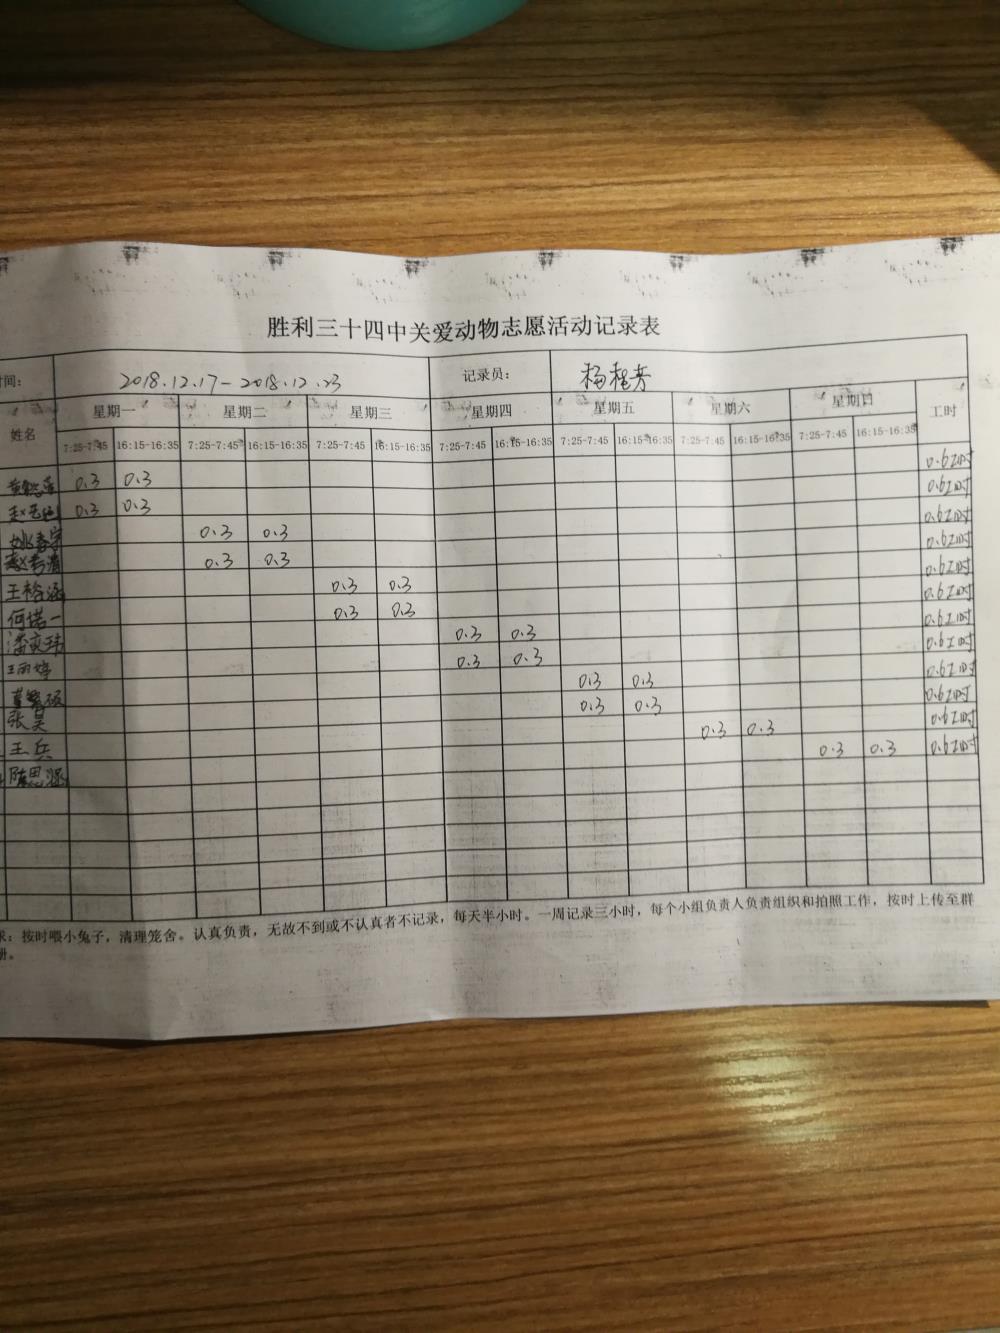 胜利三十四中关爱动物志愿活动记录表
时间: 2018.12.17-2018.12.23 记录员: 杨
姓名 星期一 星期二 星期三 星期四 星期五 星期六 星期日 工时
7:25-7:45 16:15-16:35 7:25-7:45 16:15-16:35 7:25-7:45 16:15-16:35 7:25-7:45 16:15-16:35 7:25-7:45 16:15-16:35 7:25-7:45 16:15-16:35 7:25-7:45 16:15-16:35
0.3 0.3 0.6工时
0.3 0.3 0.6工时
0.3 0.3 0.6工时
0.3 0.3 0.6工时
王裕涵 0.3 0.3 0.6工时
何诺一 0.3 0.3 0.6工时
潘奕玮 0.3 0.3 0.6工时
0.3 0.3 0.6工时
0.3 0.3 0.6工时
张昊 0.3 0.3 0.6工时
王兵 0.3 0.3 0.6工时
陈思涵 0.3 0.3 0.6工时
求: 按时喂小兔子，清理笼舍。认真负责，无故不到或不认真者不记录，每天半小时。一周记录三小时，每个小组负责人负责组织和拍照工作，按时上传至群
册。